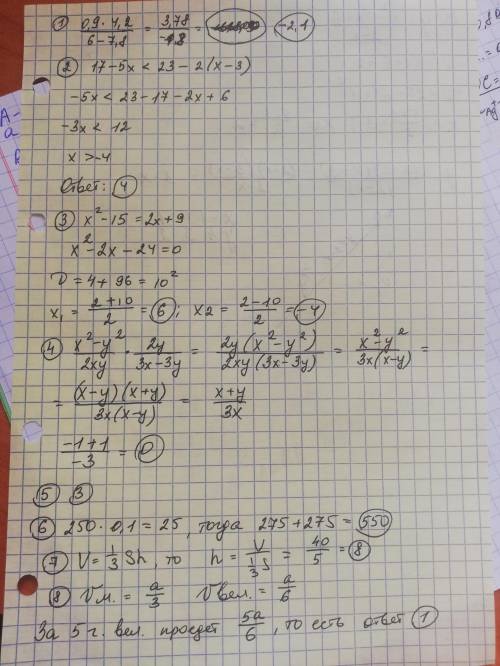 ① (0,9 · 4,2)/(6 - 7,8) = 3,78/-1,8 = -2,1
② 17 - 5x < 23 - 2(x - 3)
-5x < 23 - 17 - 2x + 6
-3x < 12
x > -4
Ответ: ④
③ x² - 15 = 2x + 9
x² - 2x - 24 = 0
D = 4 + 96 = 10²
x₁ = (2 + 10)/2 = 6; x2 = (2 - 10)/2 = -4
④ (x² - y²)/2xy · 2y/(3x - 3y) = 2y(x² - y²)/2xy(3x - 3y) = (x² - y²)/3x(x - y) =
= (x - y)(x + y)/3x(x - y) = (x + y)/3x
(-1 + 1)/-3 = 0
⑤ ③
⑥ 250 · 0,1 = 25, тогда 275 + 275 = 550
⑦ V = 1/3 Sh, то h = V/(1/3 S) = 40/5 = 8
⑧ Vм. = a/3 Vвел. = a/6
За 5 г. вел. проедет 5a/6, то есть ответ ①